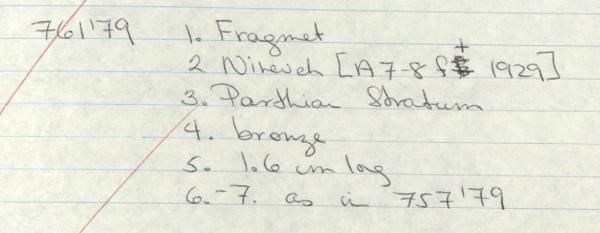 761'79 1. Fragmet
2 Nineveh [A7-8 f + 1929]
3. Parthian Stratum
4. bronze
5. 1.6 cm long
6.-7. as in 757'79